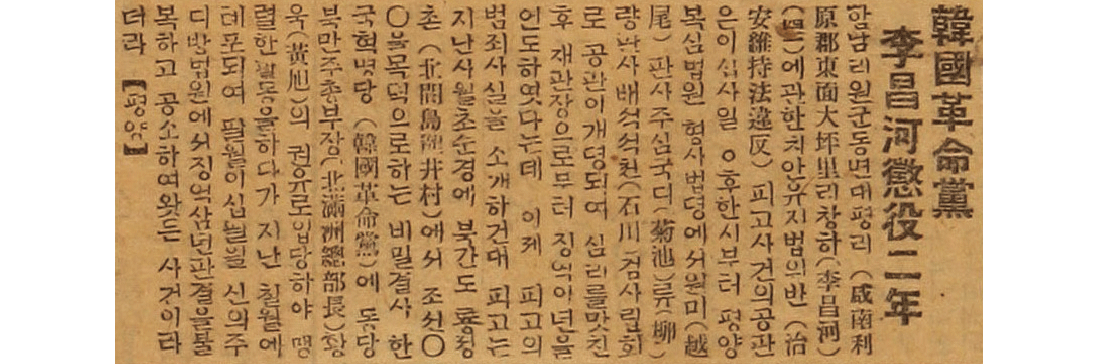 韓國革命黨
李昌河懲役二年
함남리원군동면대평리 (咸南利
原郡東面大坪里리창하(李昌河)
에관한치안유지법위반 (治
安維持法違反) 피고사건의공판
은이십사일 오후한시부터 평양
복심법원 형사법뎡에서원미(越
尾) 판사주심국디(菊池)류(柳)
량판사배석석쳔(石川)검사립회
로 공판이개뎡되여 심리를맛친
후 재판장으로부터 징역이년을
언도하엿다는데 이제 피고의
범죄사실을 소개하건대 피고는
지난사월초순경에 북간도 룡졍
촌 (北間島龍井村)애서 조선〇
〇을목뎍으로하는 비밀결사 한
국혁명당 (韓國革命黨)에 동당
북만주총부장(北滿洲總部長)황
욱(黃旭)의 권유로입당하야 맹
렬한활동을하다가 지난 칠월에
톄포되여 팔월이십칠일 신의주
디방법원에서징역삼년판결을불
복하고 공소하여왓든 사건이다
더라 【평양】